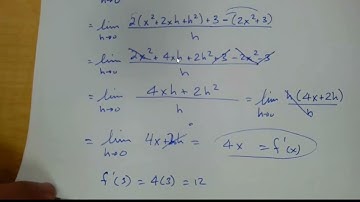 h→0
= lim h→0 2(x²+2xh+h²)+3-(2x²+3) / h
= lim h→0 2x²+4xh+2h²+3-2x²-3 / h
= lim h→0 4xh+2h² / h = lim h→0 h(4x+2h) / h
= lim h→0 4x+2h⁰ = 4x = f'(x)
f'(3) = 4(3) = 12